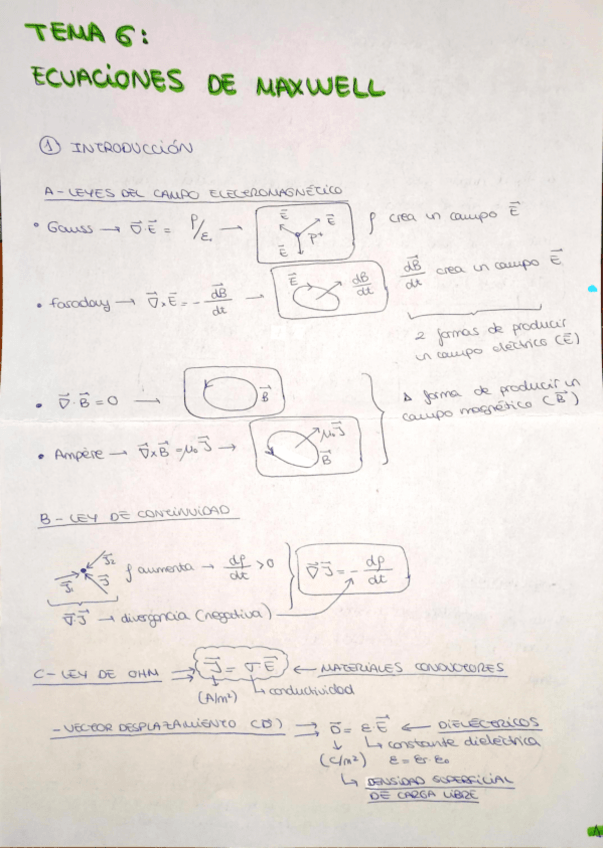 TEMA 6:
ECUACIONES DE MAXWELL
① INTRODUCCIÓN
A - LEYES DEL CAMPO ELECTROMAGNÉTICO
• Gauss → ∇⃗·E⃗ = ρ/ε₀ → E⃗ E⃗ E⃗ ρ⁺ ρ crea un campo E⃗
• Faraday → ∇⃗×E⃗ = - dB⃗/dt → E⃗ dB⃗/dt dB⃗/dt crea un campo E⃗
2 formas de producir
un campo eléctrico (E⃗)
• ∇⃗·B⃗ = 0 → B⃗
1 forma de producir un
campo magnético (B⃗)
• Ampère → ∇⃗×B⃗ = μ₀J⃗ → μ₀J⃗ B⃗
B - LEY DE CONTINUIDAD
J⃗₁ J⃗₂ J⃗ ρ aumenta → dρ/dt > 0 ∇⃗J⃗ = - dρ/dt
∇⃗·J⃗ → divergencia (negativa)
C - LEY DE OHM ⇒ J⃗ = σE⃗ ← MATERIALES CONDUCTORES
(A/m²) ↳ conductividad
- VECTOR DESPLAZAMIENTO (D⃗) ⇒ D⃗ = εE⃗ ← DIELÉCTRICOS
↳ constante dieléctrica
(C/m²) ε = εr ε₀
↳ DENSIDAD SUPERFICIAL
DE CARGA LIBRE